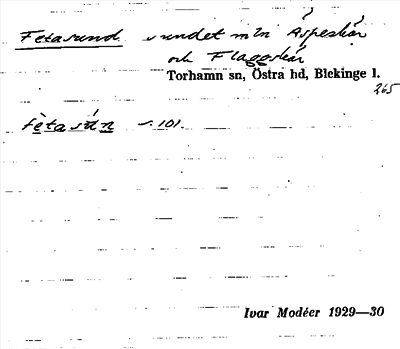 Fetasund sundet m'n Äspeskär
och Flaggskär
Torhamn sn, Östra hd, Blekinge l.
265
s. 101.
Ivar Modéer 1929—30